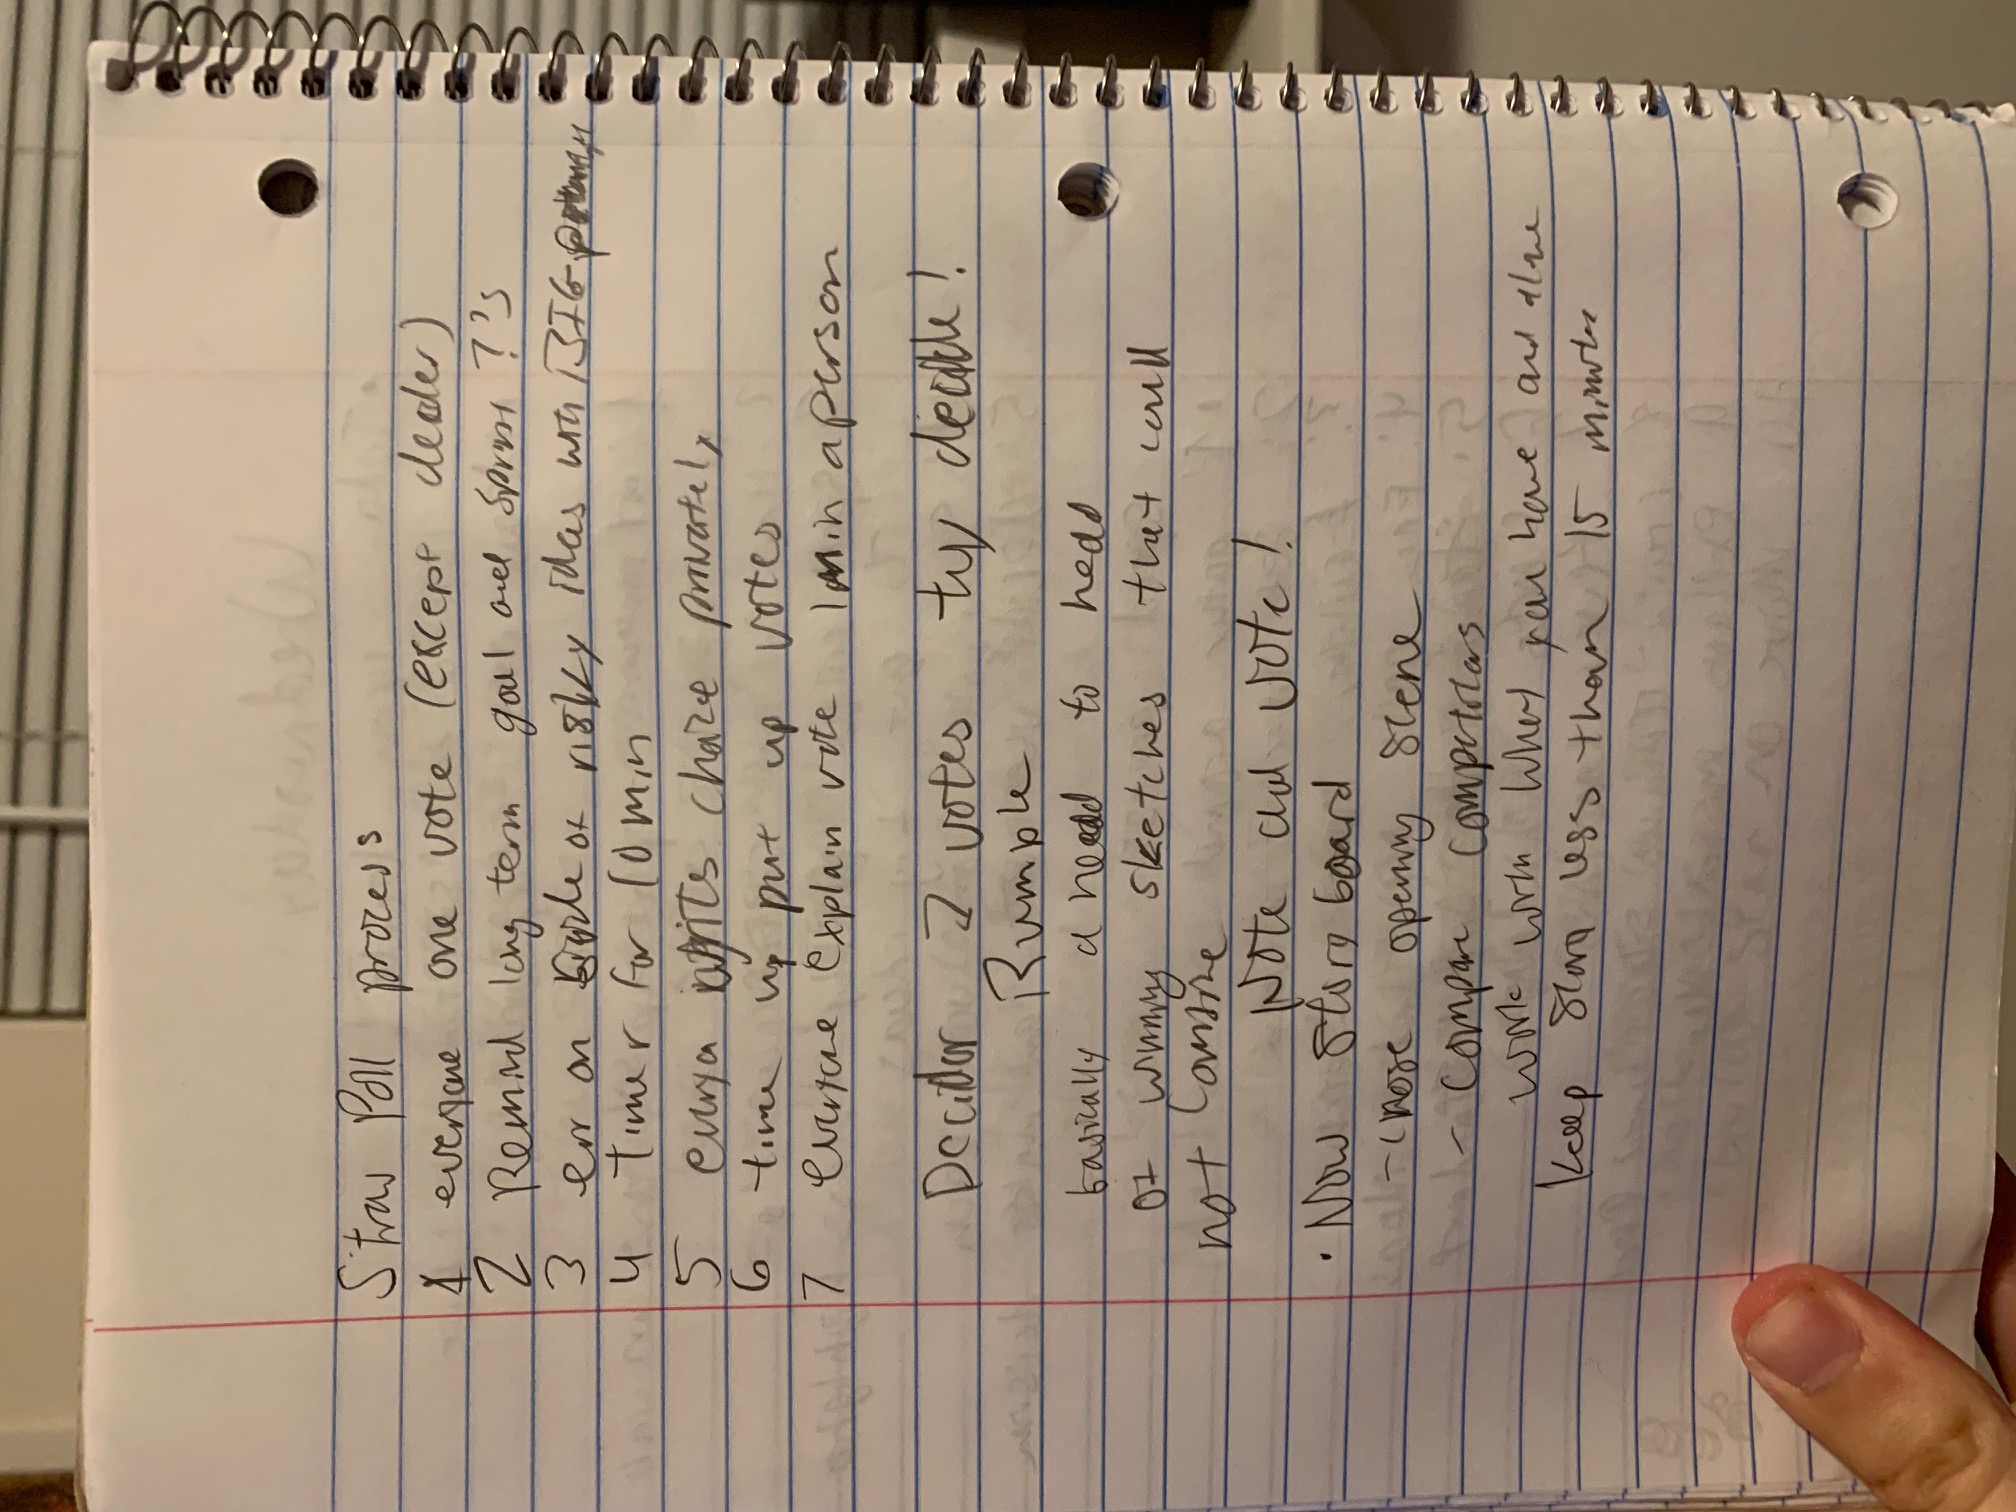 Straw Poll process
1 everyone one vote (except decider)
2 Remind long term goal and sprint ?'s
3 err on side of risky ideas with BIG
4 timer for 10 min
5 writes choice privately
6 time up put up votes
7 everyone explain vote 1 min a person
Decider 2 votes they decide!
Rumble
basically a head to head
of winning sketches that could
not combine
Note and Vote!
• Now story board
- chose opening scene
- compare competitors
work with what you have and
Keep story less than 15 minutes